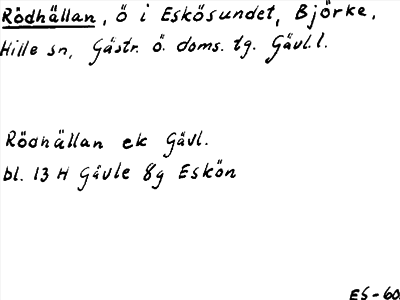 Rödhällan, ö i Eskösundet, Björke,
Hille sn, Gästr. ö. doms. tg. Gävl. l.
Rödhällan ek Gävl.
bl. 13 H Gävle 8g Eskön
ES-60